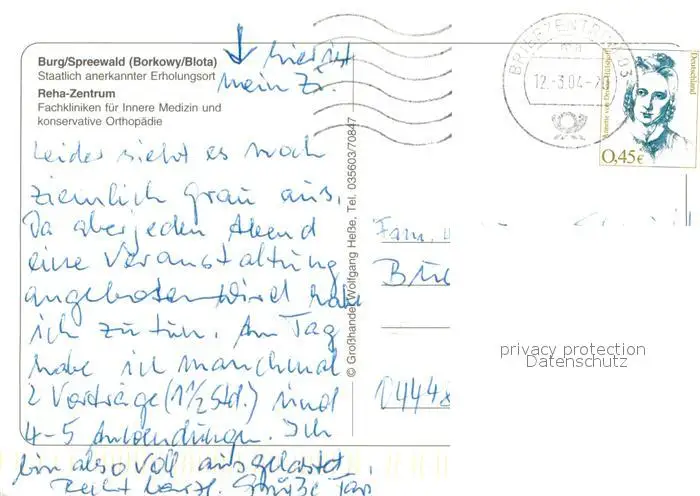 ↓ hier ist
mein Zi.
Burg/Spreewald (Borkowy/Blota)
Staatlich anerkannter Erholungsort
Reha-Zentrum
Fachkliniken für Innere Medizin und
konservative Orthopädie
Leider sieht es noch
ziemlich grau aus.
Da aber jeden Abend
eine Veranstaltung
angeboten wird habe
ich zu tun. Am Tag
habe ich manchmal
2 Vorträge (1 1/2 Std.) und
4-5 Anwendungen. Ich
bin also voll ausgelastet.
Recht herzl. Grüße
© Großhandel Wolfgang Heße, Tel. 035603/70847
BRIEFZENTRUM 03
12.-3.04-
Deutschland
0,45€
Fam.
04448
privacy protection
Datenschutz